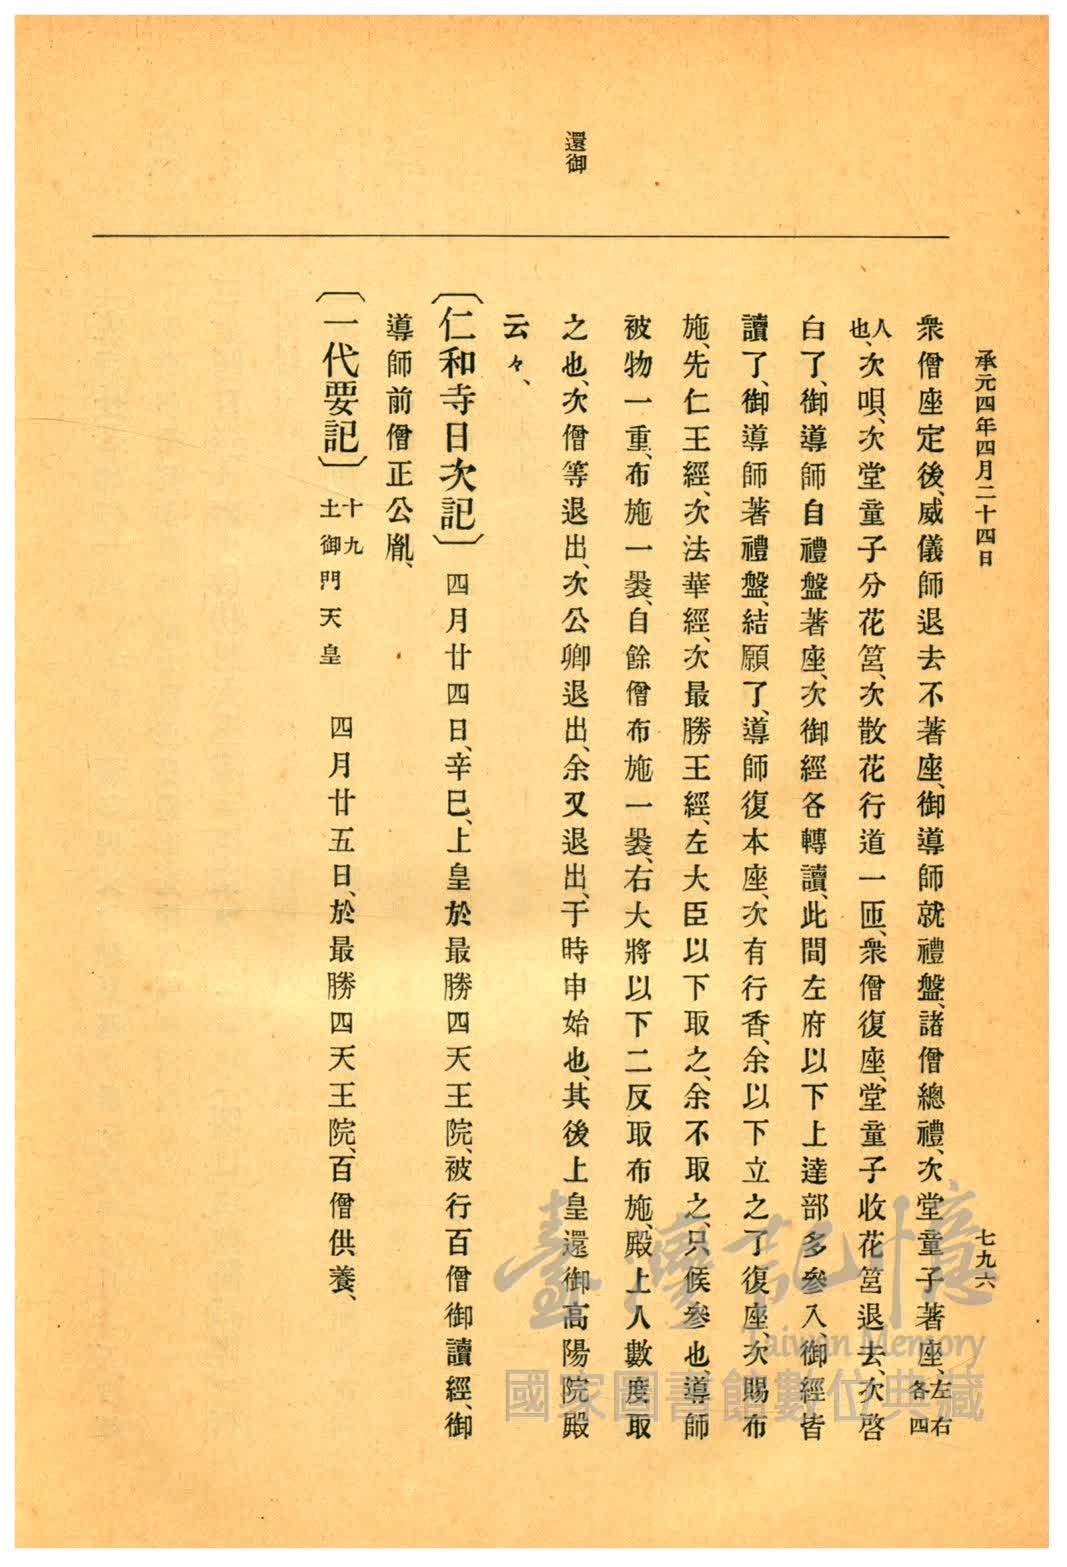 承元四年四月二十四日
七九六
還御
衆僧座定後、威儀師退去不著座、御導師就禮盤、諸僧總禮、次堂童子著座、左右各四
人也、次唄、次堂童子分花筥、次散花行道一匝、衆僧復座、堂童子收花筥退去、次啓
白了、御導師自禮盤著座、次御經各轉讀、此間左府以下上達部多參入、御經皆
讀了、御導師著禮盤、結願了、導師復本座、次有行香、余以下立之了復座、次賜布
施、先仁王經、次法華經、次最勝王經、左大臣以下取之、余不取之、只候參也、導師
被物一重、布施一褁、自餘僧布施一褁、右大將以下二反取布施、殿上人數度取
之也、次僧等退出、次公卿退出、余又退出、于時申始也、其後上皇還御高陽院殿
云々、
〔仁和寺日次記〕四月廿四日、辛巳、上皇於最勝四天王院、被行百僧御讀經、御
導師前僧正公胤、
〔一代要記〕十九土御門天皇 四月廿五日、於最勝四天王院、百僧供養、
臺灣記憶
Taiwan Memory
國家圖書館數位典藏